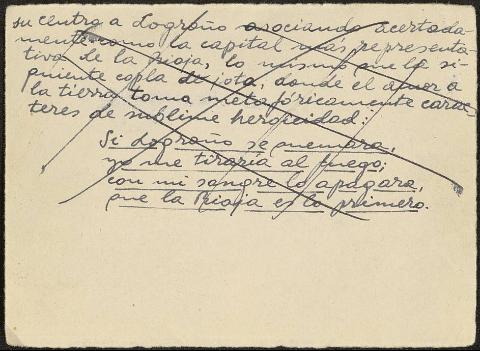 su centro a Logroño asociando acertada-
mente como la capital más representa-
tiva de la Rioja, lo mismo que la si-
guiente copla de jota, donde el amor a
la tierra toma metafóricamente carac-
teres de sublime heroicidad:
Si Logroño se quemara,
yo me tiraría al fuego;
con mi sangre lo apagara,
que la Rioja es lo primero.